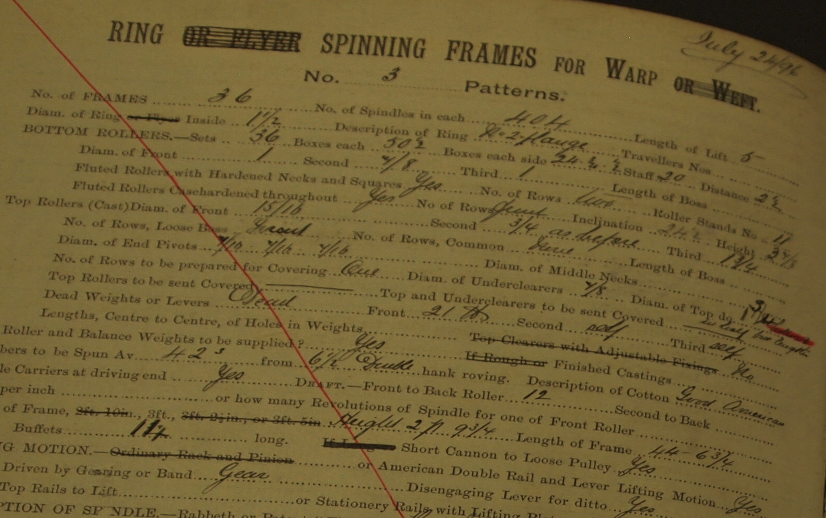 July 24/96
RING OR FLYER SPINNING FRAMES FOR WARP OR WEFT.
No. 3 Patterns.
No. of FRAMES 36 No. of Spindles in each 404 Length of Lift 5
Diam. of Ring or Flyer Inside 1 1/2 Description of Ring No 2 flange Travellers Nos
BOTTOM ROLLERS.—Sets 36 Boxes each 50 1/2 Boxes each side Staff 20 Distance
Diam. of Front 1 Second 7/8 Third 1 Length of Boss
Fluted Rollers with Hardened Necks and Squares Yes No. of Rows two Roller Stands No 11
Fluted Rollers Casehardened throughout Yes No of Rows front Inclination Height
Top Rollers (Cast) Diam. of Front 15/16 Second 3/4 as before Third 1 3/4
No. of Rows, Loose Boss Front No. of Rows, Common Length of Boss
Diam. of End Pivots 7/16 7/16 7/16 Diam. of Middle Necks
No. of Rows to be prepared for Covering One Diam. of Underclearers 7/8 Diam. of Top do.
Top Rollers to be sent Covered Top and Underclearers to be sent Covered
Dead Weights or Levers Dead Front Second self Third self
Lengths, Centre to Centre, of Holes in Weights Top Clearers with Adjustable Fixings No
Roller and Balance Weights to be supplied? Yes If Rough or Finished Castings
bers to be Spun Av 42s from 6 1/2 Double hank roving. Description of Cotton Good American
le Carriers at driving end Yes DRAFT.—Front to Back Roller 12 Second to Back
per inch or how many Revolutions of Spindle for one of Front Roller
of Frame, 2ft. 10in., 3ft., 3ft. 2½in., or 3ft. 5in. Height 2 ft 9 3/4 Length of Frame 44 - 6 3/4
Buffets long. Short Cannon to Loose Pulley Yes
NG MOTION.—Ordinary Rack and Pinion or American Double Rail and Lever Lifting Motion Yes
Driven by Gearing or Band Gear Disengaging Lever for ditto Yes
Top Rails to Lift or Stationery Rails with Lifting
PTION OF SPINDLE.—Rabbeth or